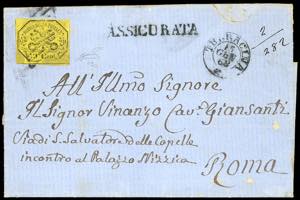 ASSICURATA
TERRACINA
2
282
All' Illmo Signore
Il Signor Vinanzo Cav. Giansanti
Via di S. Salvatore delle Capelle
incontro al Palazzo Nizzica
Roma